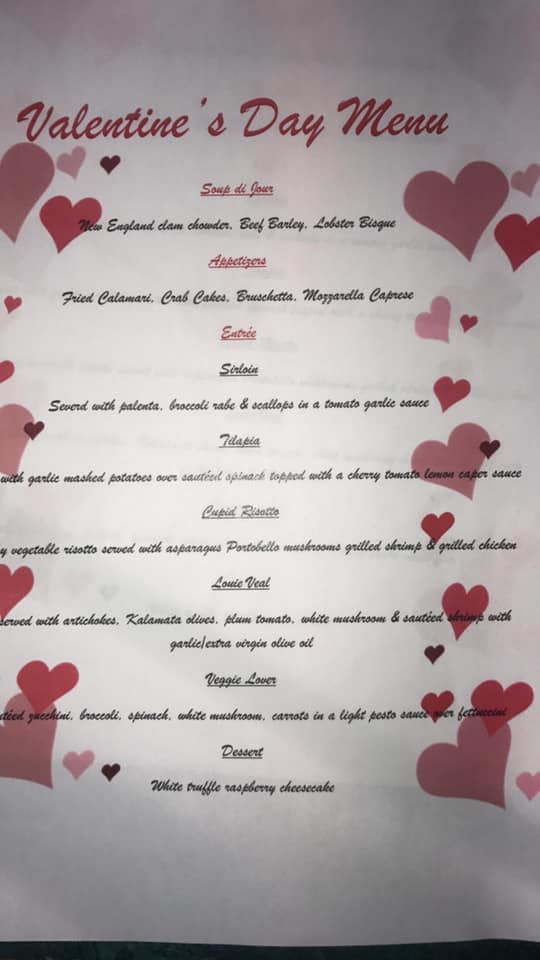 Valentine's Day Menu
Soup di Jour
New England clam chowder, Beef Barley, Lobster Bisque
Appetizers
Fried Calamari, Crab Cakes, Bruschetta, Mozzarella Caprese
Entrée
Sirloin
Severd with palenta, broccoli rabe & scallops in a tomato garlic sauce
Tilapia
with garlic mashed potatoes over sautéed spinack topped with a cherry tomato lemon caper sauce
Cupid Risotto
vegetable risotto served with asparagus Portobello mushrooms grilled shrimp & grilled chicken
Louie Veal
served with artichokes, Kalamata olives, plum tomato, white mushroom & sautéed shrimp with
garlic/extra virgin olive oil
Veggie Lover
zucchini, broccoli, spinach, white mushroom, carrots in a light pesto sauce over fettuccini
Dessert
White truffle raspberry cheesecake